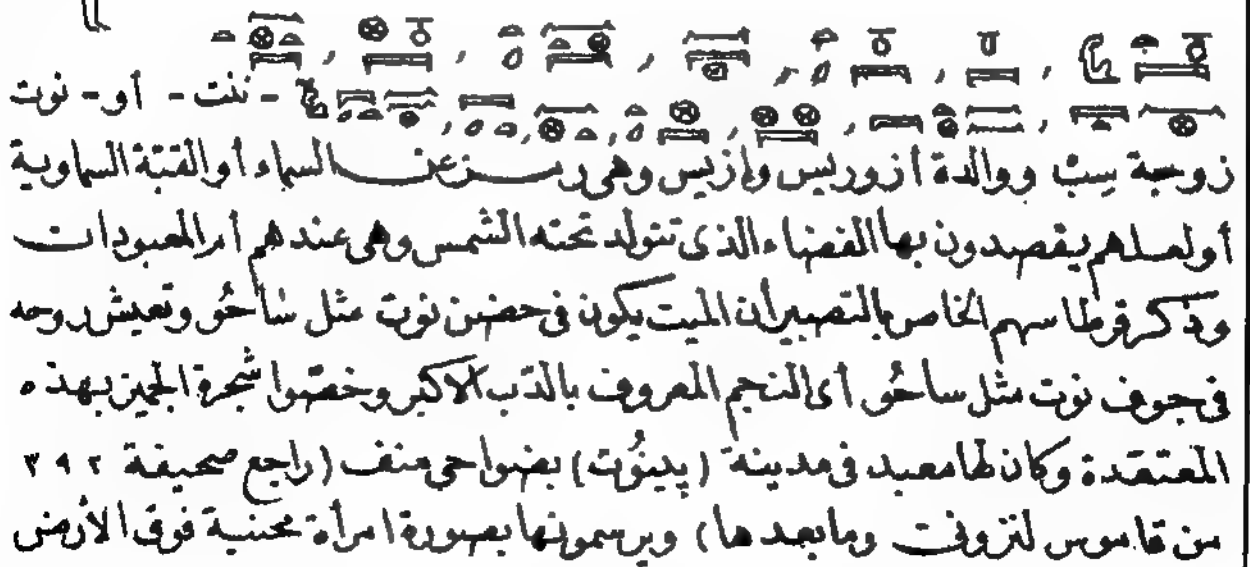 ننت - أو - نوت
زوجة سِبْ ووالدة أزوريس وإزيس وهى رمز عن السماء أوالقبّة السماوية
أولعلهم يقصدون بهاالفضاءالذى تتولد تحته الشمس وهى عندهم أم المعبودات
وذكر قرطاسهم الخاص بالتصبير أن الميت يكون فى حضن نوت مثل سأحُو وتعيش روحه
فى جوف نوت مثل سأحُو أى النجم المعروف بالدّب الاكبر وخصّوا شجرة الجميز بهذه
المعتقدة وكان لهامعبد فى مدينة (پينُوت) بضواحى منف (راجع صحيفة ٣٩٢
من قاموس لنزونى ومابعدها) ويرسمونها بصورة امرأة محنية فوق الأرض